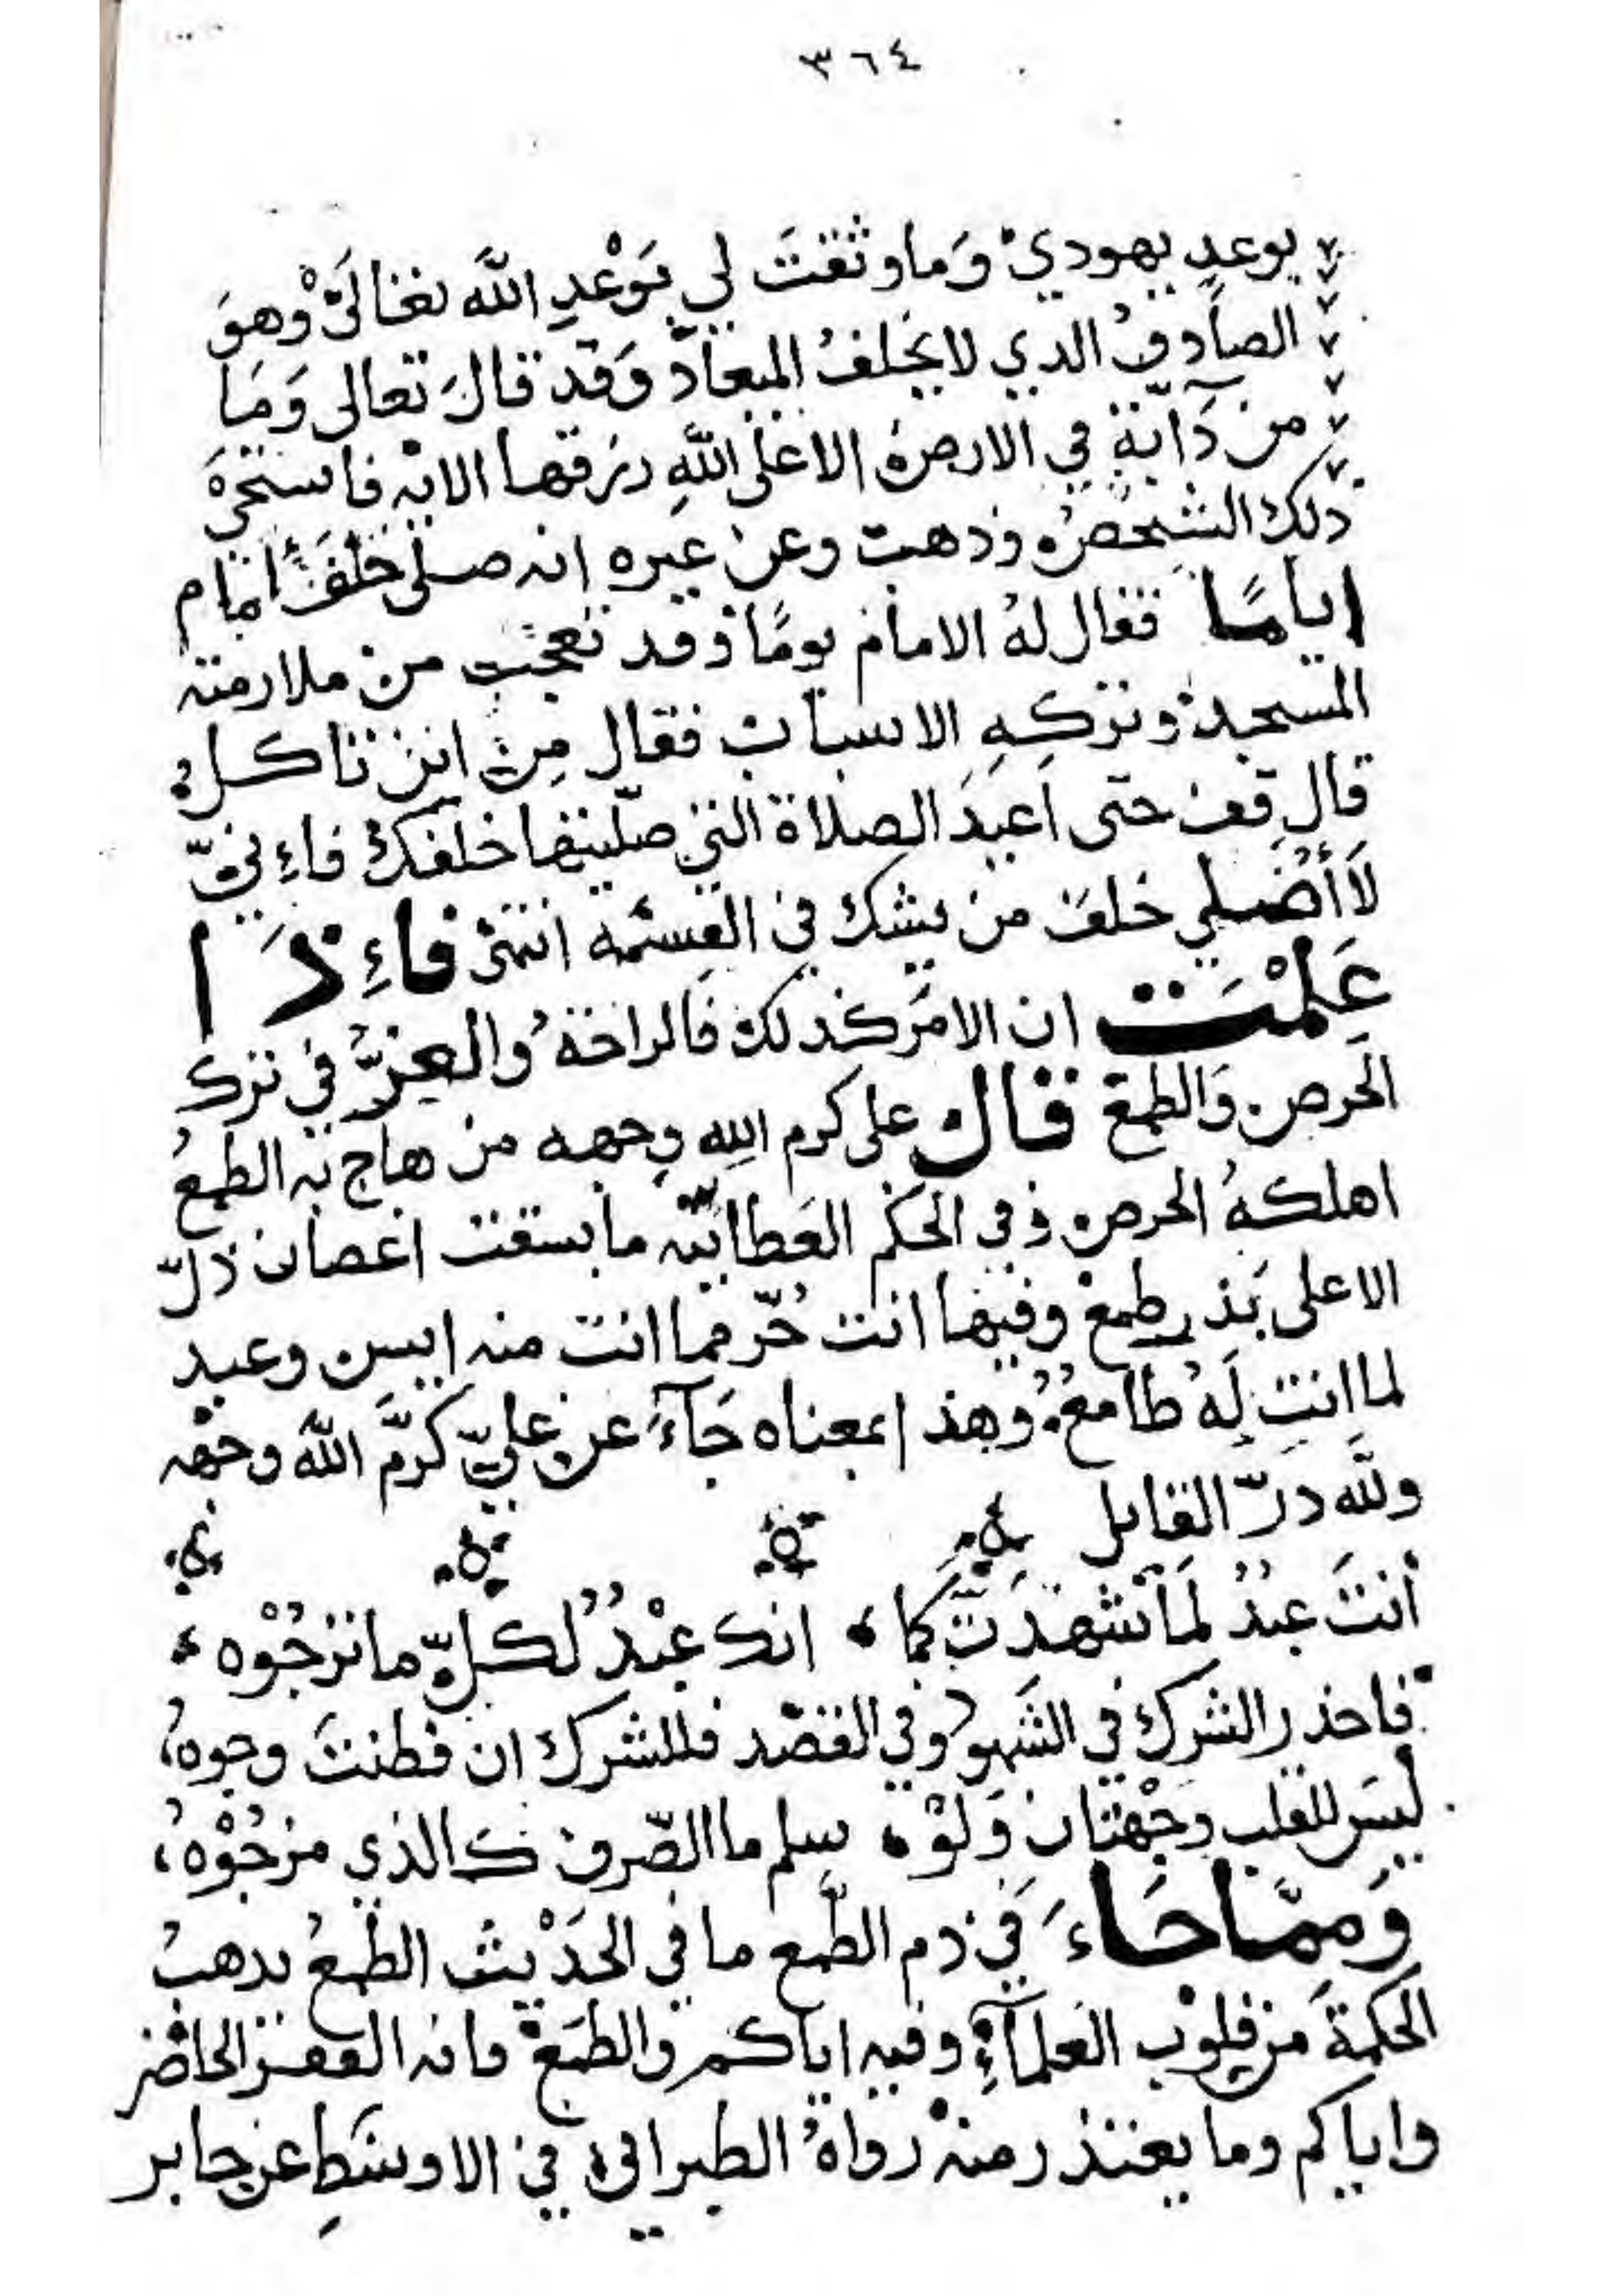 ٣٦٤
بوعد يهودي وَما وثقتَ لي بوَعْدِ اللّه تعالىٰ وهوَ
الصادق الذي لا يخلفُ الميعاد وَقد قالَ تعالى وَمَا
من دَآبّةٍ في الارض الا على اللّهِ رزقها الايه فاستحى
ذلك الشخص وذهب وعن غيره انه صلى خلفَ امام
اياما فقال لهُ الامام يومًا وقد تعجب من ملازمته
المسجد وتركهِ الاسباب فقال مِن اين تاكل
قال قف حتى اعيدَ الصلاة التي صلّيتها خلفك فاءِني
لاَ أُصلي خلف من يشك في القسمه انتهى فاءِذَا
عَلِمْتَ ان الامرَ كذلك فالراحةُ والعِزُّ في ترك
الحرص وَالطمع قال على كرم الله وجهه من هاج به الطمعُ
اهلكهُ الحرص وفي الحكم العَطائيّه ما بسقت اغصان ذلّ
الا على بَذر طمع وفيها انت حُرّ مما انت منه ايس وعبد
لما انت لَهُ طامعٌ وهذا بمعناه جَآءَ عن عليّ كرّمَ اللّه وجهه
وللّه درّ القايل
أنتَ عبدٌ لمَا شهدتَ كما انك عبْدٌ لكلّ ما ترجُوْه
فاحذر الشرك في الشهو وفي القصد فللشرك ان فطنتَ وجوهُ
ليسَ للقلب وجْهتان وَلوْ سلم ما الصّرف كالذي مزجُوْهُ
وَممّا جَاءَ في ذم الطّمع ما في الحَدْيث الطّمعُ يذهبُ
الحكمةَ من قلوْب العلمآءِ وفيه اياكم والطمَع فانه الفقر الحاضر
واياكم وما يعتذر منه رواهُ الطبراني في الاوسَطِ عن جابر